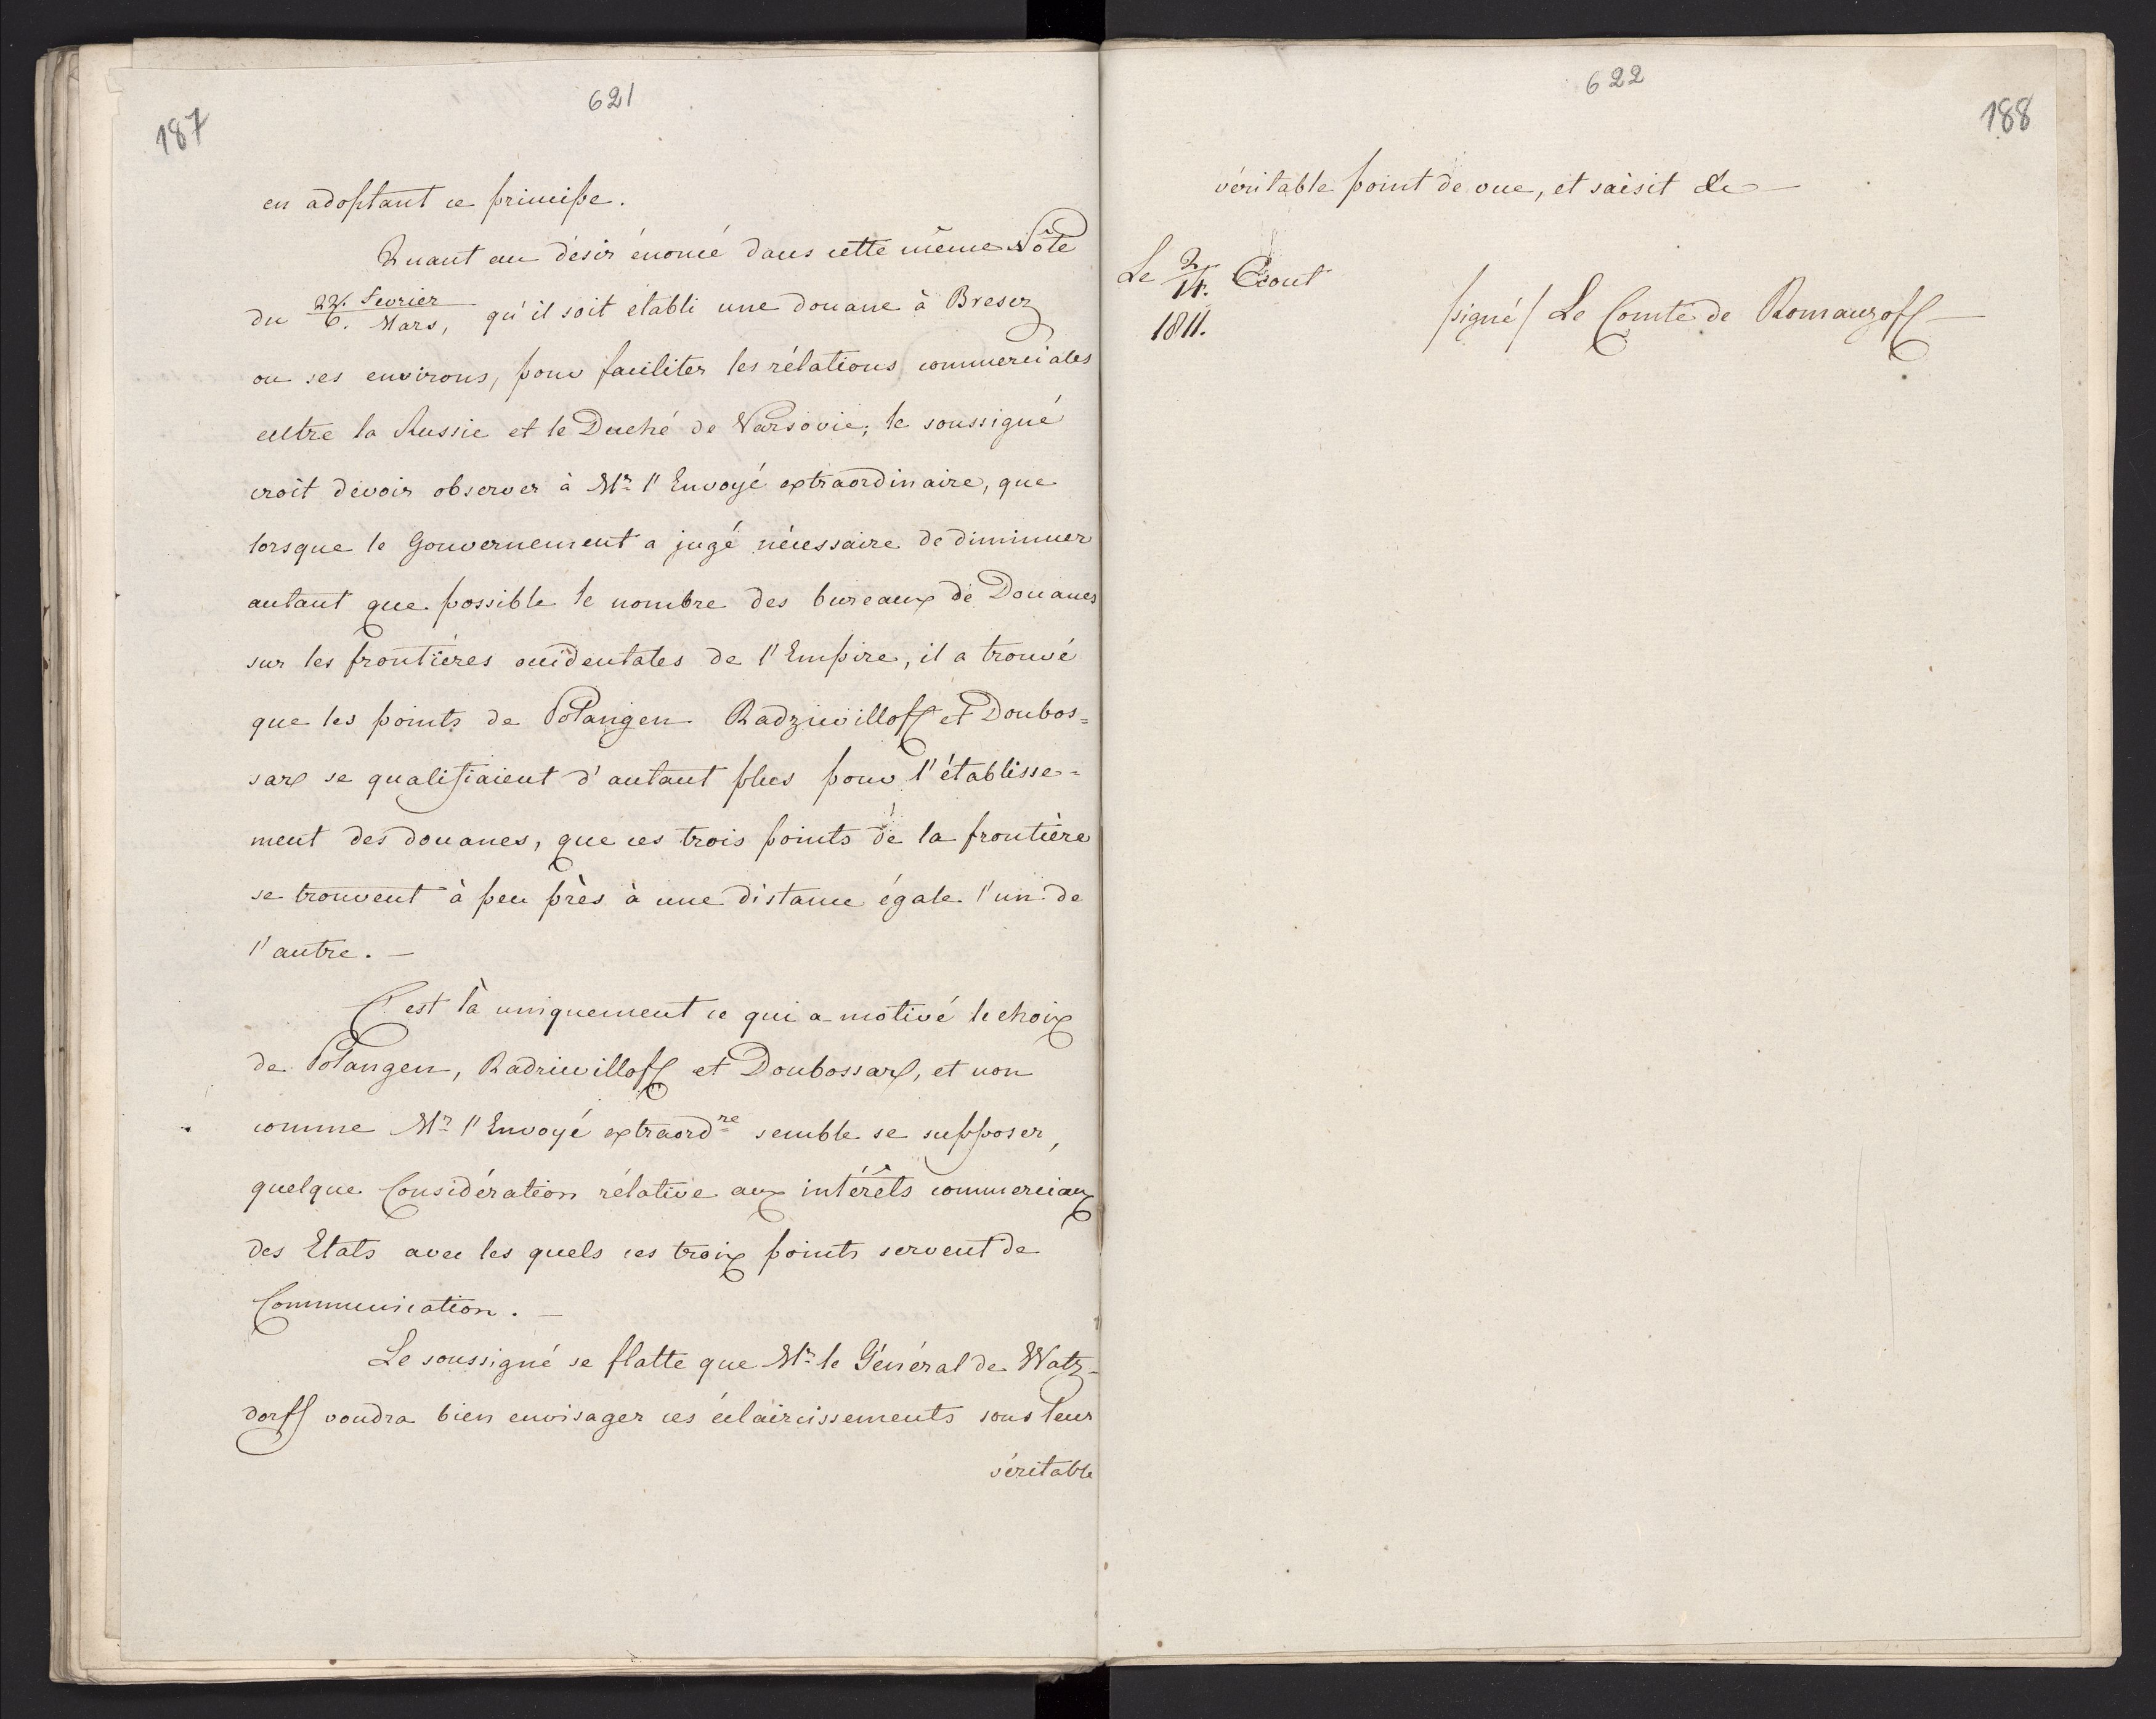 621
187
en adoptant ce principe.
Quant au désir énoncé dans cette même Nôte
du 22. Fevrier / 6. Mars, qu'il soit établi une douane à Bresez
ou ses environs, pour faciliter les rélations commerciales
entre la Russie et le Duché de Varsovie; le soussigné
croit devoir observer à Mr. l'Envoyé extraordinaire, que
lorsque le Gouvernement a jugé nécessaire de diminuer
autant que possible le nombre des bureaux de Douanes
sur les frontiéres occidentales de l'Empire, il a trouvé
que les points de Polangen Radziwilloff et Doubos=
sarx se qualifiaient d'autant plus pour l'établisse=
ment des douanes, que ces trois points de la frontière
se trouvent à peu près à une distance égale l'un de
l'autre. —
C'est là uniquement ce qui a motivé le choix
de Polangen, Radziwilloff et Doubossarx, et non
comme Mr. l'Envoyé extraordre semble se supposer,
quelque Considération rélative aux intérêts commerciaux
des Etats avec les quels ces troix points servent de
Communication. —
Le soussigné se flatte que Mr. le Général de Watz-
dorff voudra bien envisager ces éclaircissements sous leur
véritable
622
188
véritable point de vue, et saisit &c —
Le 2/14. Aout
1811.
/signé/ Le Comte de Romanzoff —